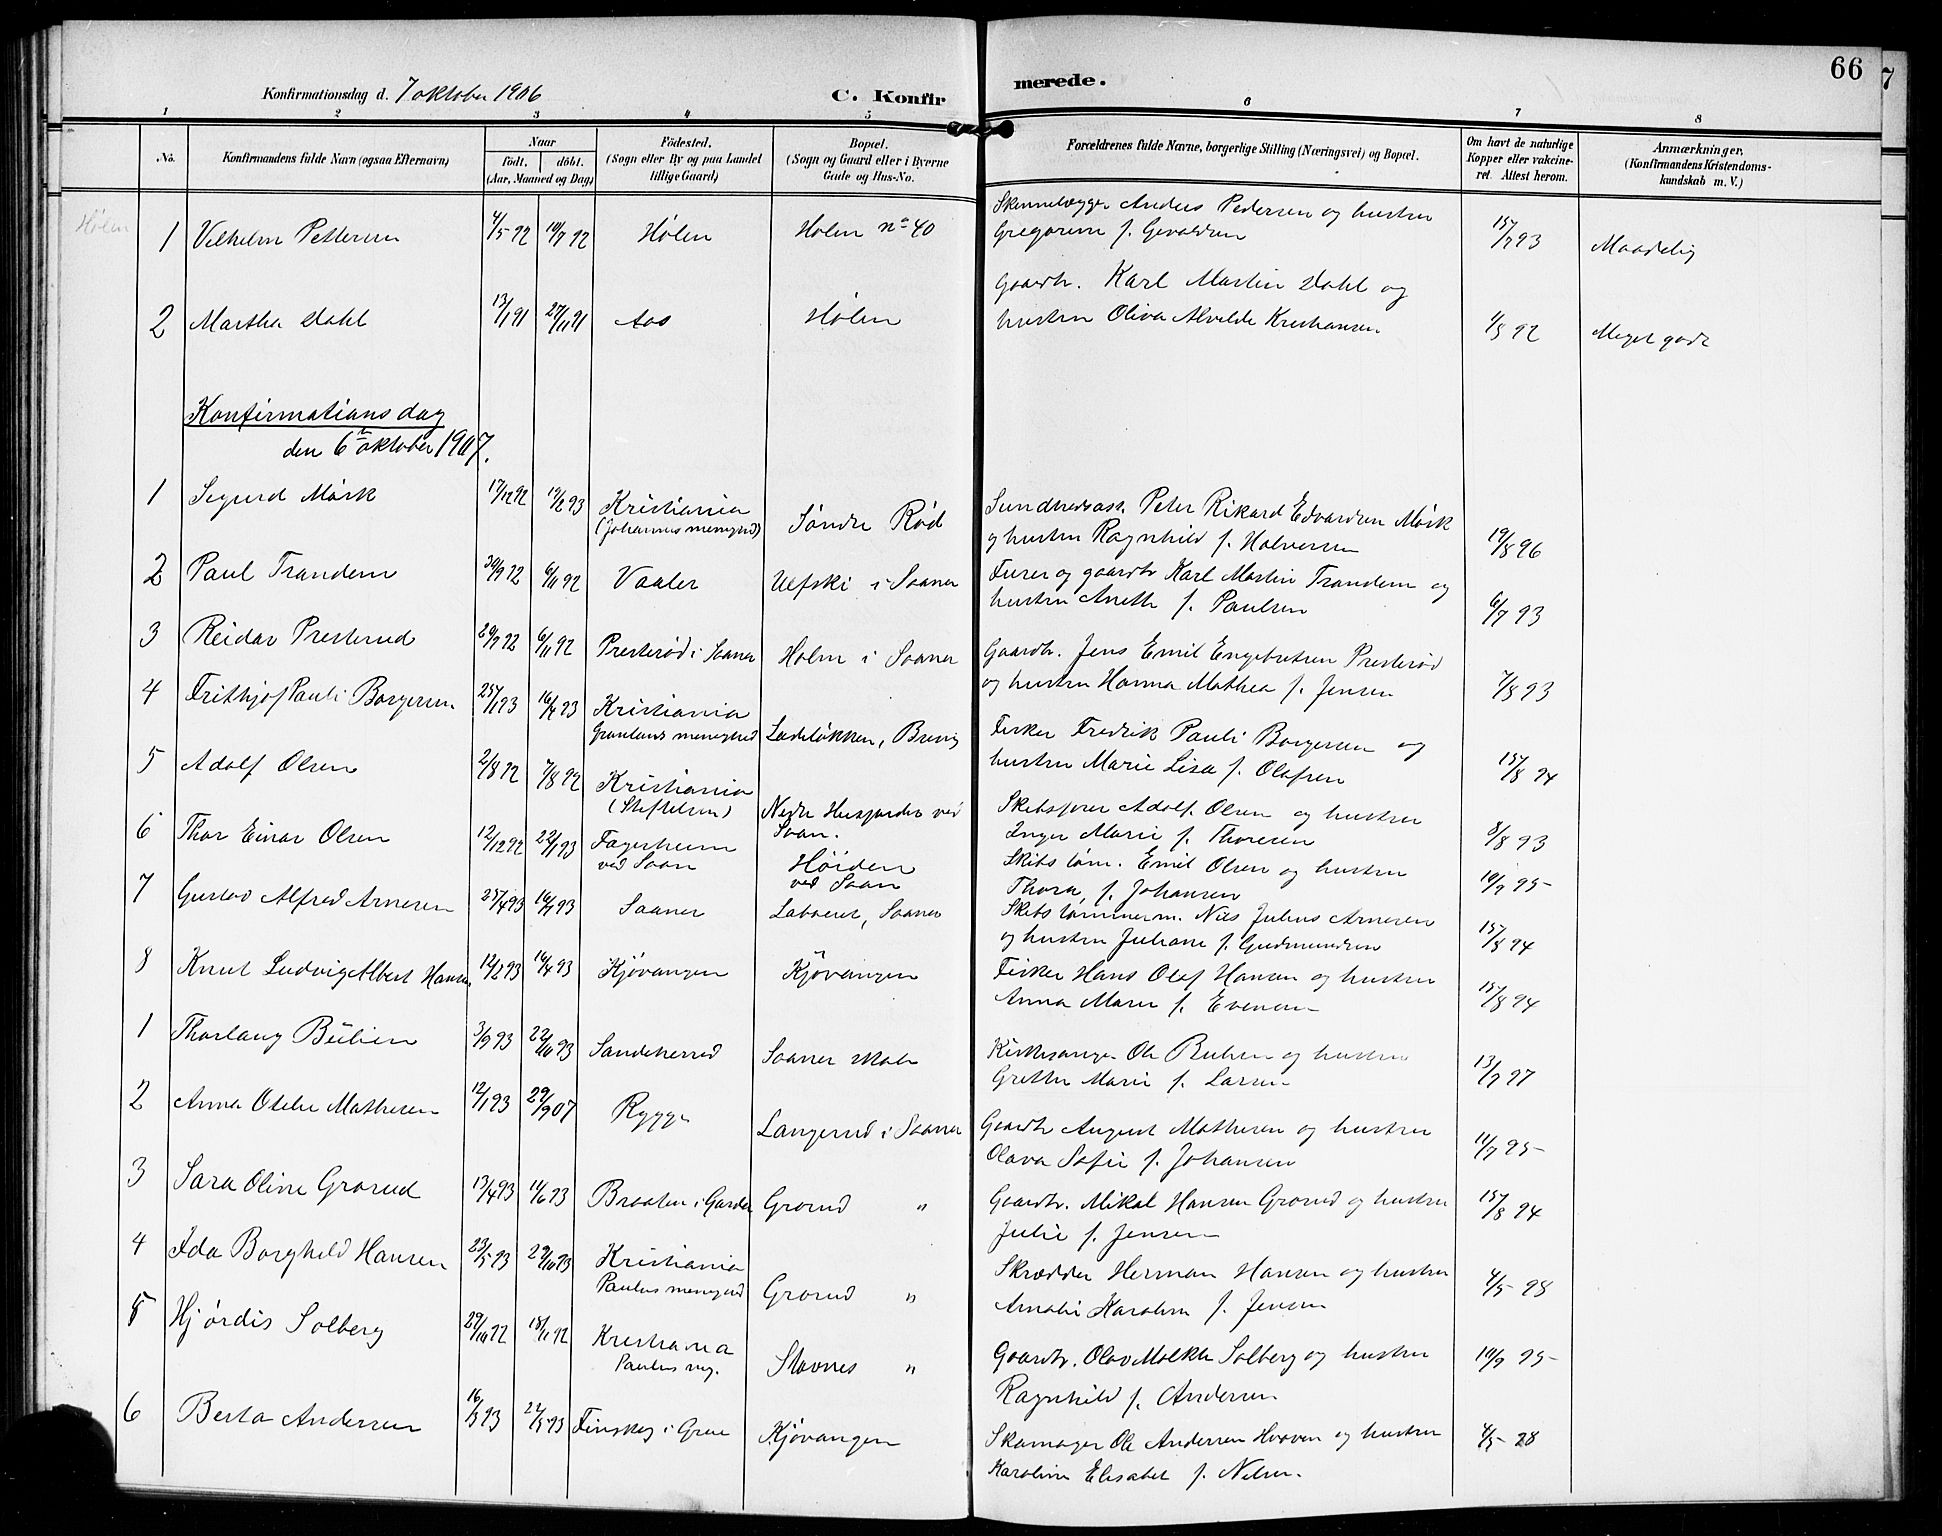 66
7
Konfirmationsdag d. 7 oktober 1906
C. Konfirmerede.
1 2 3 4 5 6 7 8
No.
Konfirmandens fulde Navn (ogsaa Efternavn)
Naar
født, døbt.
(Aar, Maaned og Dag)
Födested.
(Sogn eller By og paa Landet
tillige Gaard)
Bopæl.
(Sogn og Gaard eller i Byerne
Gade og Hus-No.
Forældrenes fulde Navne, borgerlige Stilling (Næringsvei) og Bopæl.
Om havt de naturlige
Kopper eller vakcine-
ret. Attest herom.
Anmærkninger,
(Konfirmandens Kristendoms-
kundskab m. V.)
Hølen
1 Vilhelm Pettersen 4/5 92 10/7 92 Hølen Hølen no 40 Anders Pedersen og hustru
Gregorine f. 15/7 93 Maadelig
2 Martha Dahl 13/1 91 27/11 91 Aas Hølen Gaardbr. Karl Martin Dahl og
hustru Oliva Alvilde Kristiansen. 1/8 92 Meget godt
Konfirmations dag
den 6te oktober 1907.
1 Sigurd Mørk 17/12 92 19/2 93 Kristiania
(Johannes menighed) Søndre Rød Sundhedsass. Peter Rikard Edvardsen Mørk
og hustru Ragnhild f. Halvorsen 19/8 96
2 Paul Trandem 30/9 92 6/11 92 Vaaler Ulfski i Saaner Furer og gaardbr Karl Martin Trandem og
hustru Anette f. Paulsen 6/7 93
3 Reidar Presterud 29/7 92 6/11 92 Presterød i Saaner Holm i Saaner Gaardbr. Jens Emil Engebretsen Presterød
og hustru Hanna Mathea f. Jensen 7/8 93
4 Frithjof Pauli Borgersen 25/1 93 16/4 93 Kristiania
Grønlands menighed Ladeløkken, Brevig Fisker Fredrik Pauli Borgersen og
hustru Marie Lisa f. Olafsen 15/8 94
5 Adolf Olsen 2/8 92 7/8 92 Kristiania
(Stiftelsen) Nedre Husjordet ved
Saan. Skibsfører Adolf Olsen og hustru
Inger Marie f. Thoresen 8/8 93
6 Thor Einar Olsen 12/12 92 22/1 93 Fagerheim
ved Saan Høiden
ved Saan Skibstøm. Emil Olsen og hustru
Thora, f. Johansen 10/7 95
7 Gustav Alfred Arnesen 25/4 93 16/7 93 Saaner Labaret, Saaner Skibstømmerm. Nils Julius Arnesen
og hustru Juliane f. Gudmundsen 15/8 94
8 Knut Ludvig Albert Hansen 12/2 93 16/4 93 Kjøvangen Kjøvangen Fisker Hans Olaf Hansen og hustru
Anna Marie f. Evensen 15/8 94
1 Thorlaug Bülien 3/9 93 22/10 93 Sandeherred Saaner skole Kirkesanger Ole Bulien og hustru
Grethe Marie f. Larsen 13/7 97
2 Anna Otelie Mathisen 12/1 93 29/9 07 Rygge Langerud i Saaner Gaardbr August Mathisen og hustru
Olava Sofie f. Johansen 11/7 95
3 Sara Oline Grorud 13/4 93 11/6 93 Braaten i Garder Grorud " Gaardbr. Mikal Hansen Grorud og hustru
Julie f. Jensen 15/8 94
4 Ida Borghild Hansen 23/5 93 29/10 93 Kristiania
Paulus menighed Grorud " Skrædder Herman Hansen og hustru
Amalie Karoline f. Jensen 4/5 98
5 Hjørdis Solberg 29/10 92 18/11 92 Kristiania
Paulus mg. Stavnes " Gaardbr. Olav Molkte Solberg og hustru
Ragnhild f. Andersen 10/7 95
6 Berta Andersen 16/3 93 22/5 93 Finskog i Grue Kjøvangen Skomager Ole Andersen og hustru
Karoline Elisabet f. Nilsen. 4/5 98